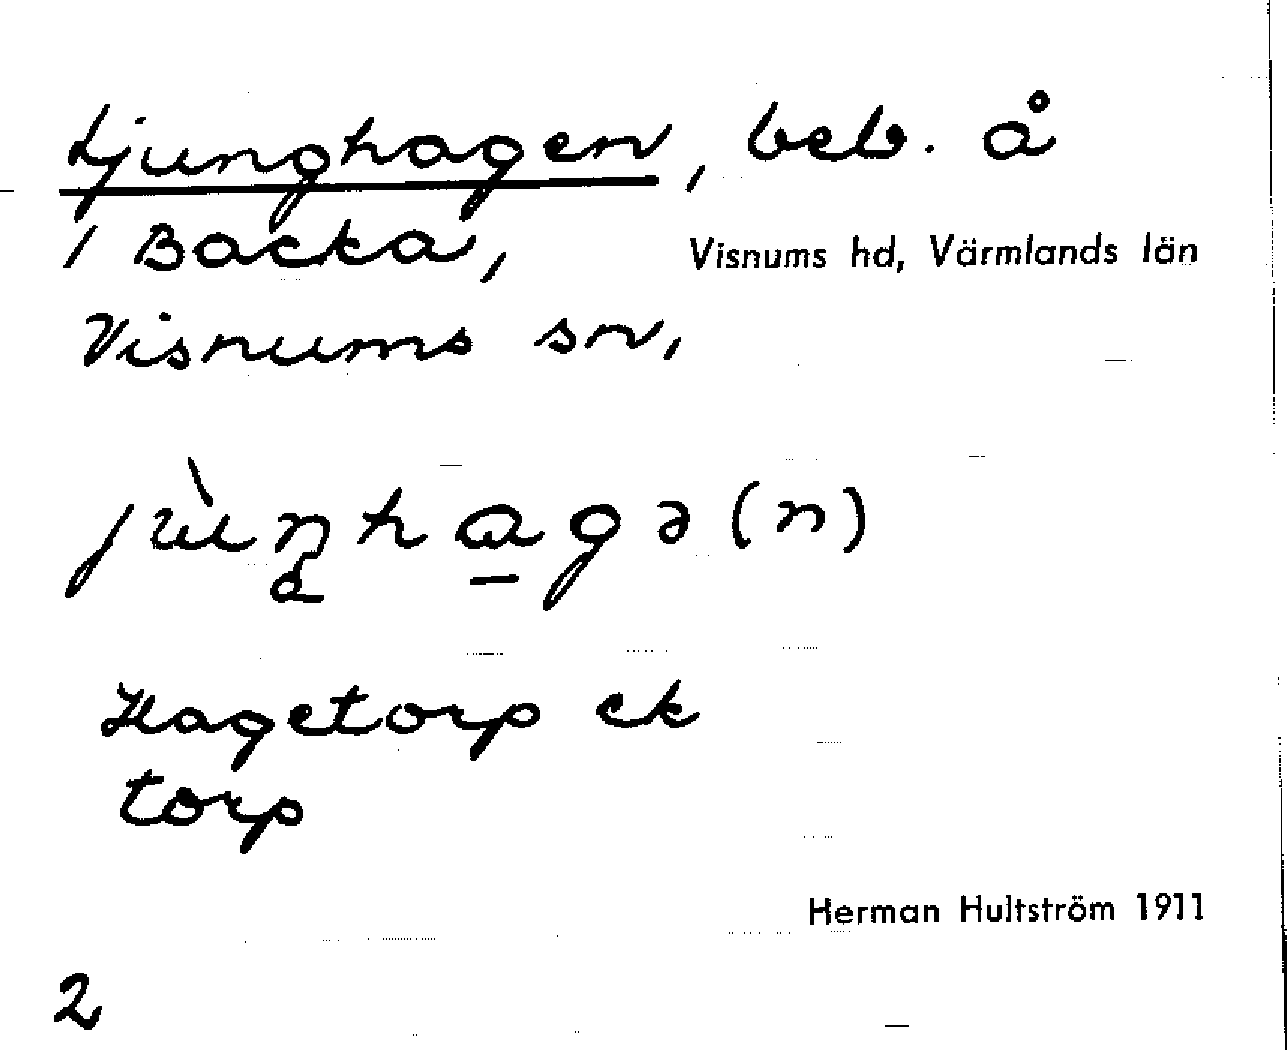 Ljunghagen, beb. å
1 Backa,
Visnums hd, Värmlands län
Visnums sn,
Hagetorp ek
torp
Herman Hultström 1911
2